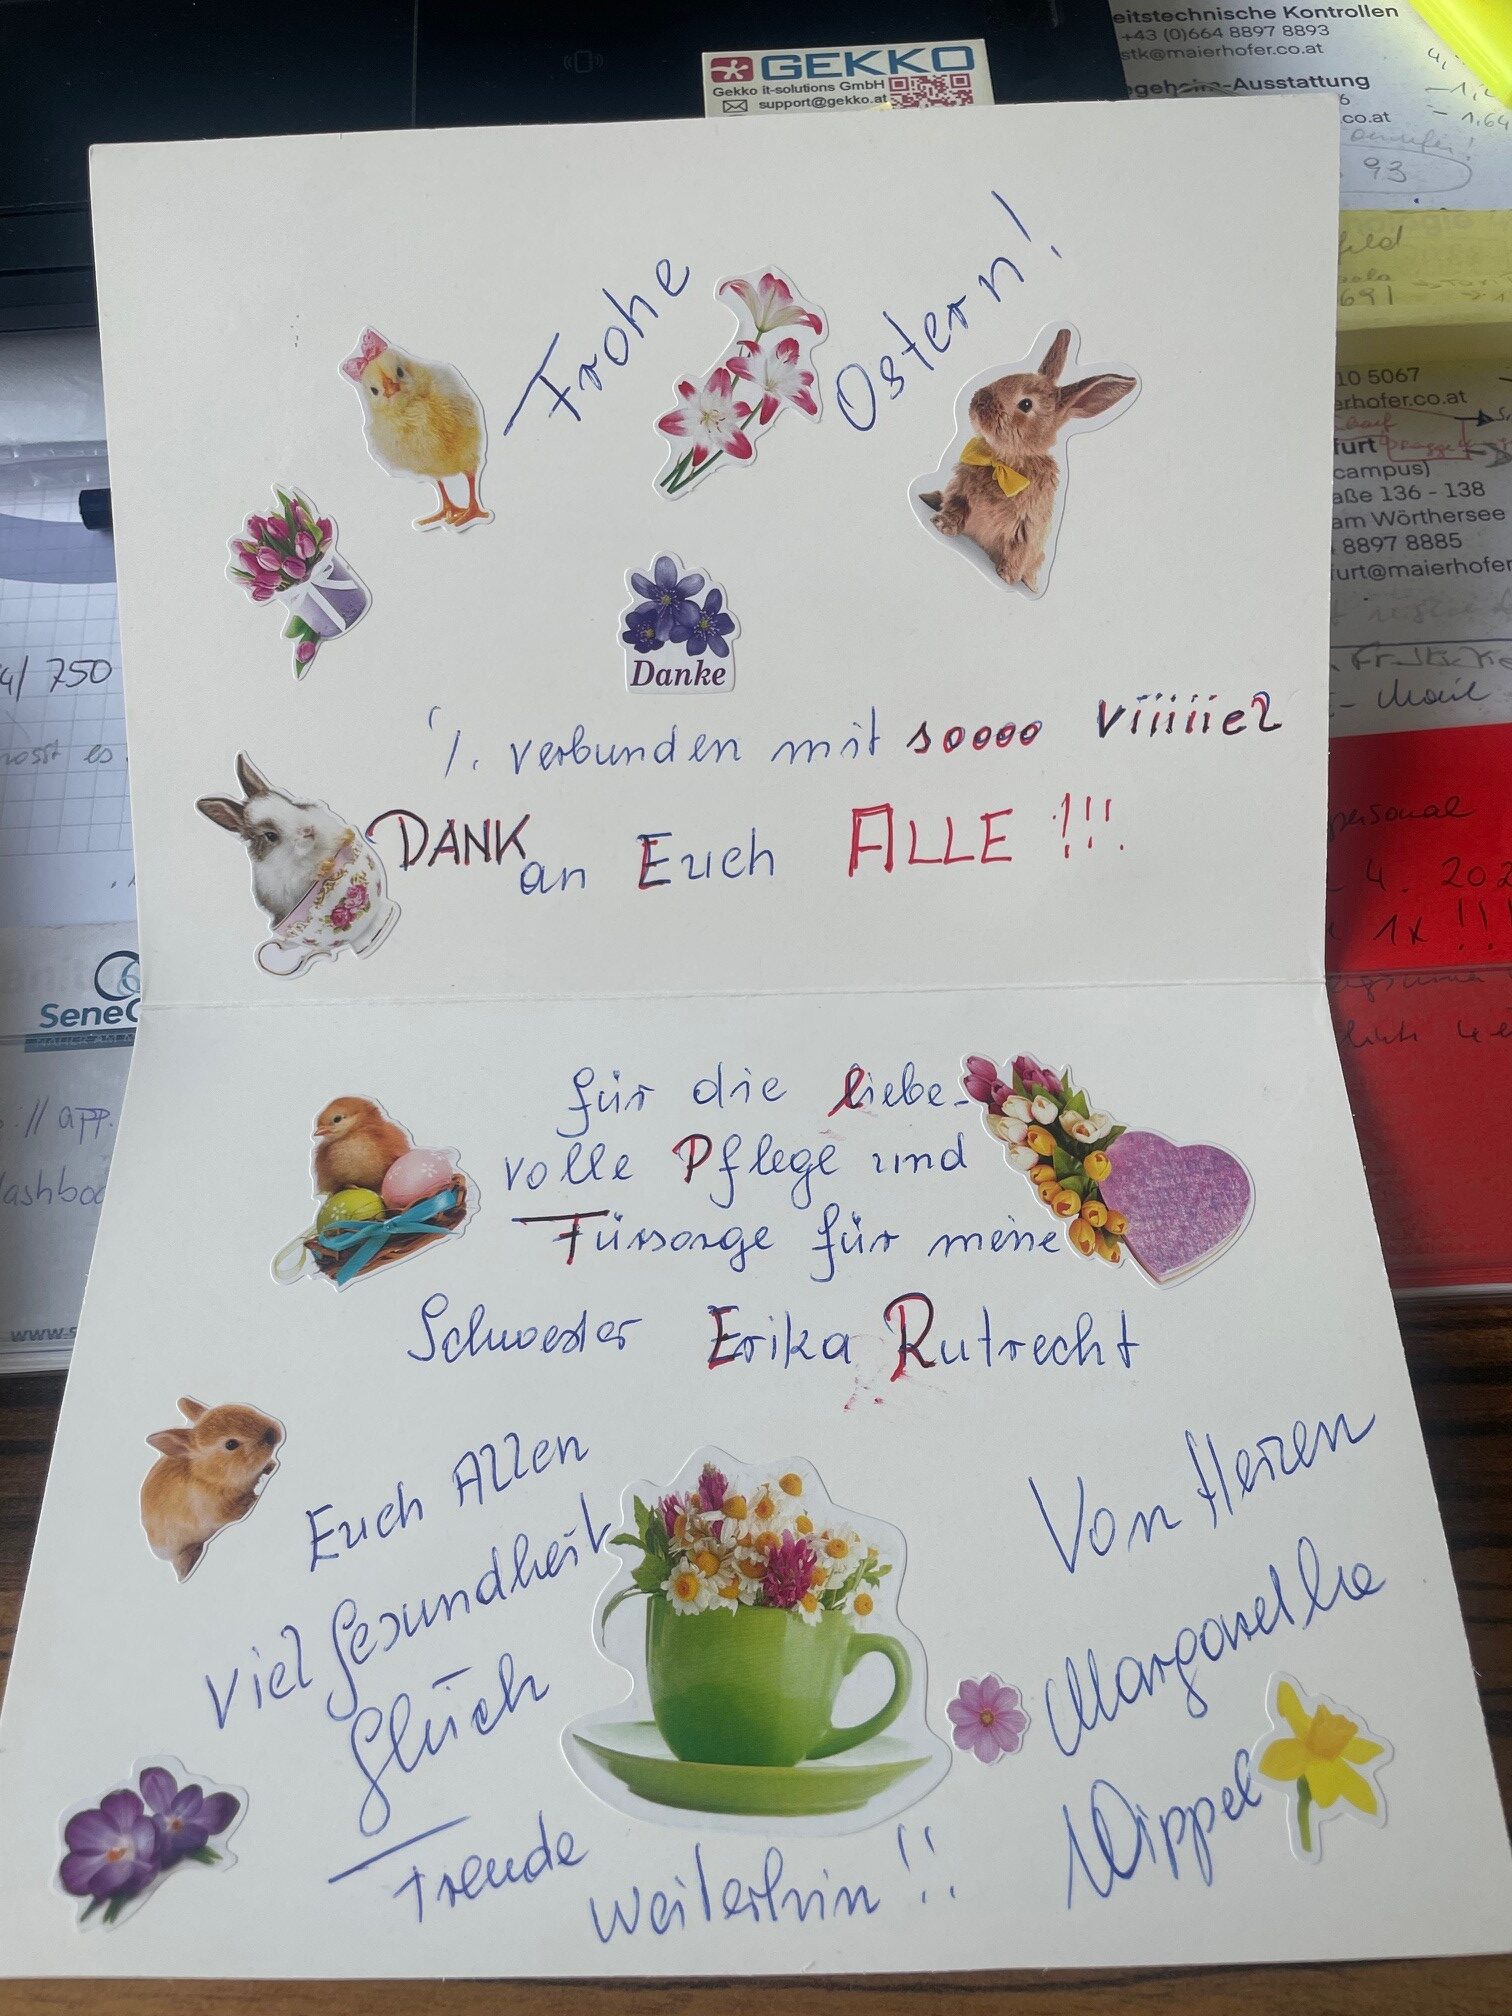 GEKKO
Gekko it-solutions GmbH
support@gekko.at
eitstechnische Kontrollen
+43 (0)664 8897 8893
stk@maierhofer.co.at
-Ausstattung
co.at
93
691
10 5067
erhofer.co.at
furt
campus)
aße 136 - 138
am Wörthersee
8897 8885
furt@maierhofer
- Mail
personal
4. 202
1x !!!
4/ 750
es
Sene
// app.
dashboa
www.s
Frohe Ostern!
Danke
1. verbunden mit soooo viiiiiel
DANK an Euch ALLE !!!
für die liebe-
volle Pflege und
Fürsorge für meine
Schwester Erika Rutrecht
Euch Allen
viel Gesundheit
Glück
Freude
weiterhin !!
Von Herzen
Margarethe
Wippel